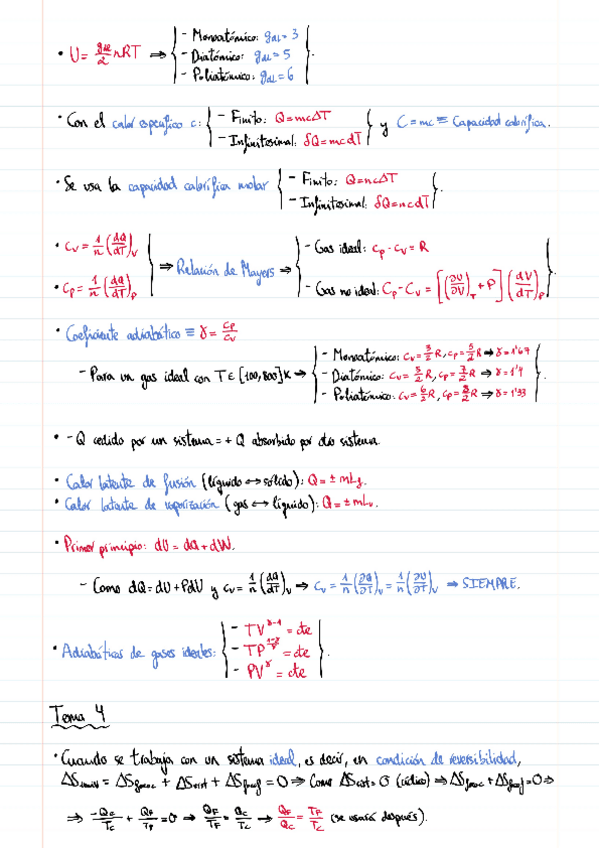 • U = gdl/2 nRT ⇒ { - Monoatómico: gdl = 3
- Diatómico: gdl = 5
- Poliatómico: gdl = 6 }.
• Con el calor específico c: { - Finito: Q = mcΔT
- Infinitesimal: δQ = mcdT } y C = mc ≡ Capacidad calorífica.
• Se usa la capacidad calorífica molar { - Finito: Q = ncΔT
- Infinitesimal: δQ = ncdT }.
• Cv = 1/n (dQ/dT)V
• Cp = 1/n (dQ/dT)P } ⇒ Relación de Mayers ⇒ { - Gas ideal: Cp - Cv = R
- Gas no ideal: Cp - Cv = [(∂U/∂V)T + P] (dV/dT)P }.
• Coeficiente adiabático ≡ γ = Cp/Cv
- Para un gas ideal con T ∈ [100, 800] K ⇒ { - Monoatómico: Cv = 3/2 R, Cp = 5/2 R ⇒ γ = 1'67
- Diatómico: Cv = 5/2 R, Cp = 7/2 R ⇒ γ = 1'4
- Poliatómico: Cv = 6/2 R, Cp = 8/2 R ⇒ γ = 1'33 }.
• - Q cedido por un sistema = + Q absorbido por otro sistema.
• Calor latente de fusión (líquido ↔ sólido): Q = ± mLf.
• Calor latente de vaporización (gas ↔ líquido): Q = ± mLv.
• Primer principio: dU = dQ + dW.
- Como dQ = dU + PdU y Cv = 1/n (dQ/dT)V ⇒ Cv = 1/n (∂Q/∂T)V = 1/n (∂U/∂T)V ⇒ SIEMPRE.
• Adiabáticas de gases ideales: { - TV^γ-1 = cte
- TP^1-γ/γ = cte
- PV^γ = cte }.
Tema 4
• Cuando se trabaja con un sistema ideal, es decir, en condición de reversibilidad,
ΔSuniv = ΔSfoc + ΔSsist + ΔSfrog = 0 ⇒ Como ΔSsist = 0 (cíclico) ⇒ ΔSfoc + ΔSfrog = 0 ⇒
⇒ -Qc/Tc + QF/TF = 0 ⇒ QF/TF = Qc/Tc ⇒ QF/QC = TF/TC (se usará después).